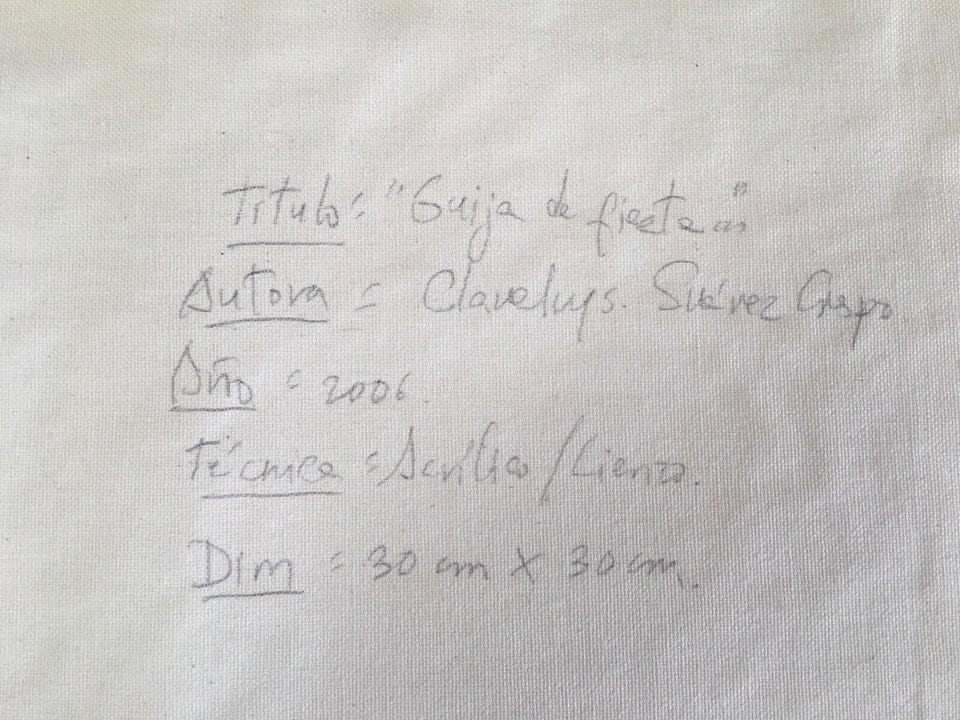 Título: "Guija de fiesta"
Autora = Claveluys. Suárez Crespo
Año = 2006.
Técnica = Acrílico/Lienzo.
Dim = 30 cm x 30 cm.